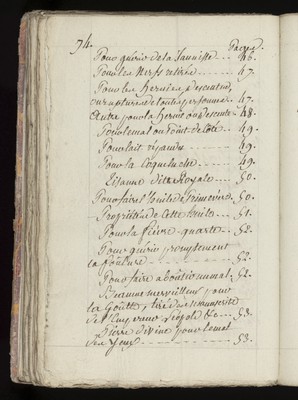 74.
Pages.
Pour guérir de la Jaunisse 46.
Pour les Nerfs retirés 47.
Pour les hernies, descentes,
ou ruptures de toutes personnes 47.
Autre pour la hernie ou descente 48.
Pour le mal ou Point de Côté 49.
Pour lait répandu 49.
Pour la Coqueluche 49.
Tisanne ditte Royale 50.
Pour faire l'huile de 50.
Propriétés de Cette huile 51.
Pour la fièvre quarte 52.
Pour guérir promptement
la foulure 52.
Pour faire aboutir un mal, 52.
Beaume merveilleux pour
la Goutte, tiré des manuscrits
de l'Empereur Léopold &c 53.
Pierre divine pour le mal
des Yeux 53.